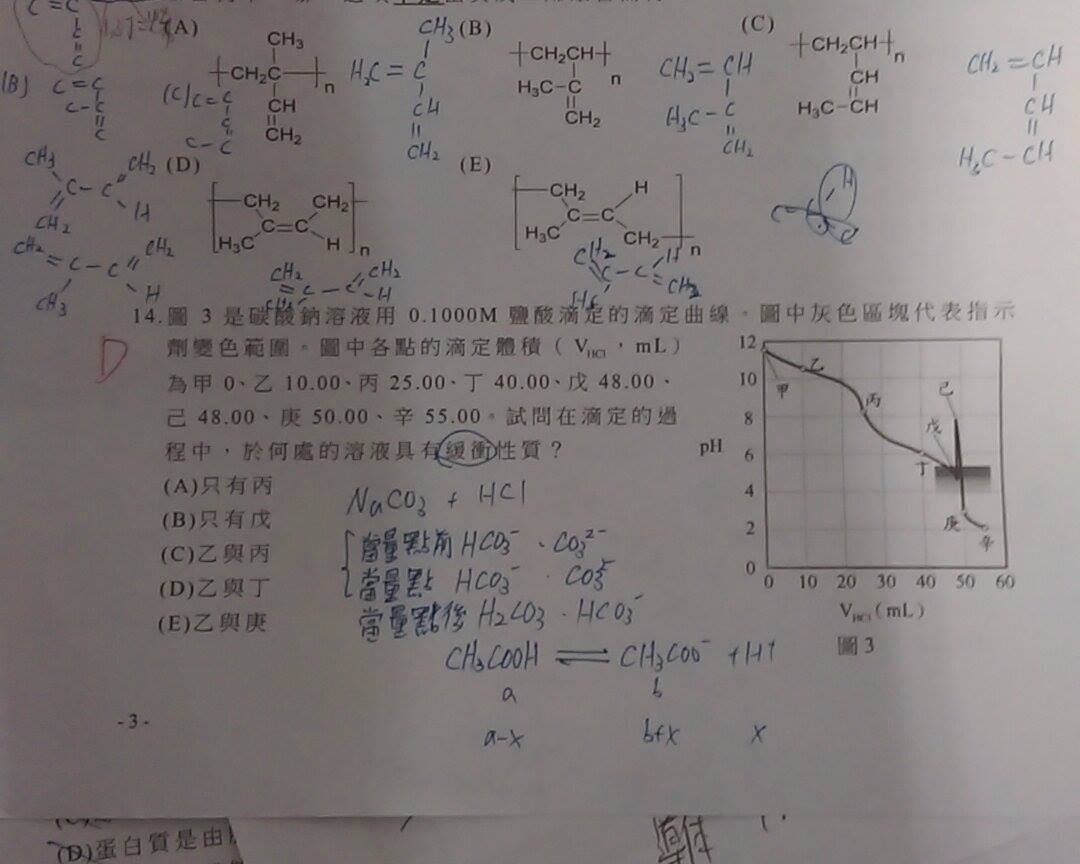 (A)
(B)
(C)
CH₃
CH₃
-[CH₂C]-n
CH
CH₂
H₂C=C
CH
CH₂
-[CH₂CH]-n
H₃C-C
CH₂
CH₂=CH
H₃C-C
CH₂
-[CH₂CH]-n
CH
H₃C-CH
CH₂=CH
CH
H₃C-CH
(B)
(C)
(D)
(E)
CH₃
CH₂
C-C
H
CH₂
CH₂
CH₂
=C-C
CH₃
H
CH₂
CH₂
C=C
H₃C
H
n
CH₂
CH₂
C-C
H
CH₂
H
C=C
H₃C
CH₂
n
CH₂
H
C-C
CH₂
H₃C
14.圖 3 是碳酸鈉溶液用 0.1000M 鹽酸滴定的滴定曲線。圖中灰色區塊代表指示
D
劑變色範圍。圖中各點的滴定體積（V_HCl，mL）
為甲 0、乙 10.00、丙 25.00、丁 40.00、戊 48.00、
己 48.00、庚 50.00、辛 55.00。試問在滴定的過
程中，於何處的溶液具有緩衝性質？
(A)只有丙
(B)只有戊
(C)乙與丙
(D)乙與丁
(E)乙與庚
NaCO₃ + HCl
當量點前 HCO₃⁻、CO₃²⁻
當量點 HCO₃⁻
當量點後 H₂CO₃、HCO₃⁻
CH₃COOH ⇌ CH₃COO⁻ + H⁺
a b
a-x b+x x
12
10
8
6
4
2
0
pH
甲
乙
丙
丁
戊
己
庚
辛
0 10 20 30 40 50 60
V_HCl(mL)
圖 3
-3-
(D)蛋白質是由